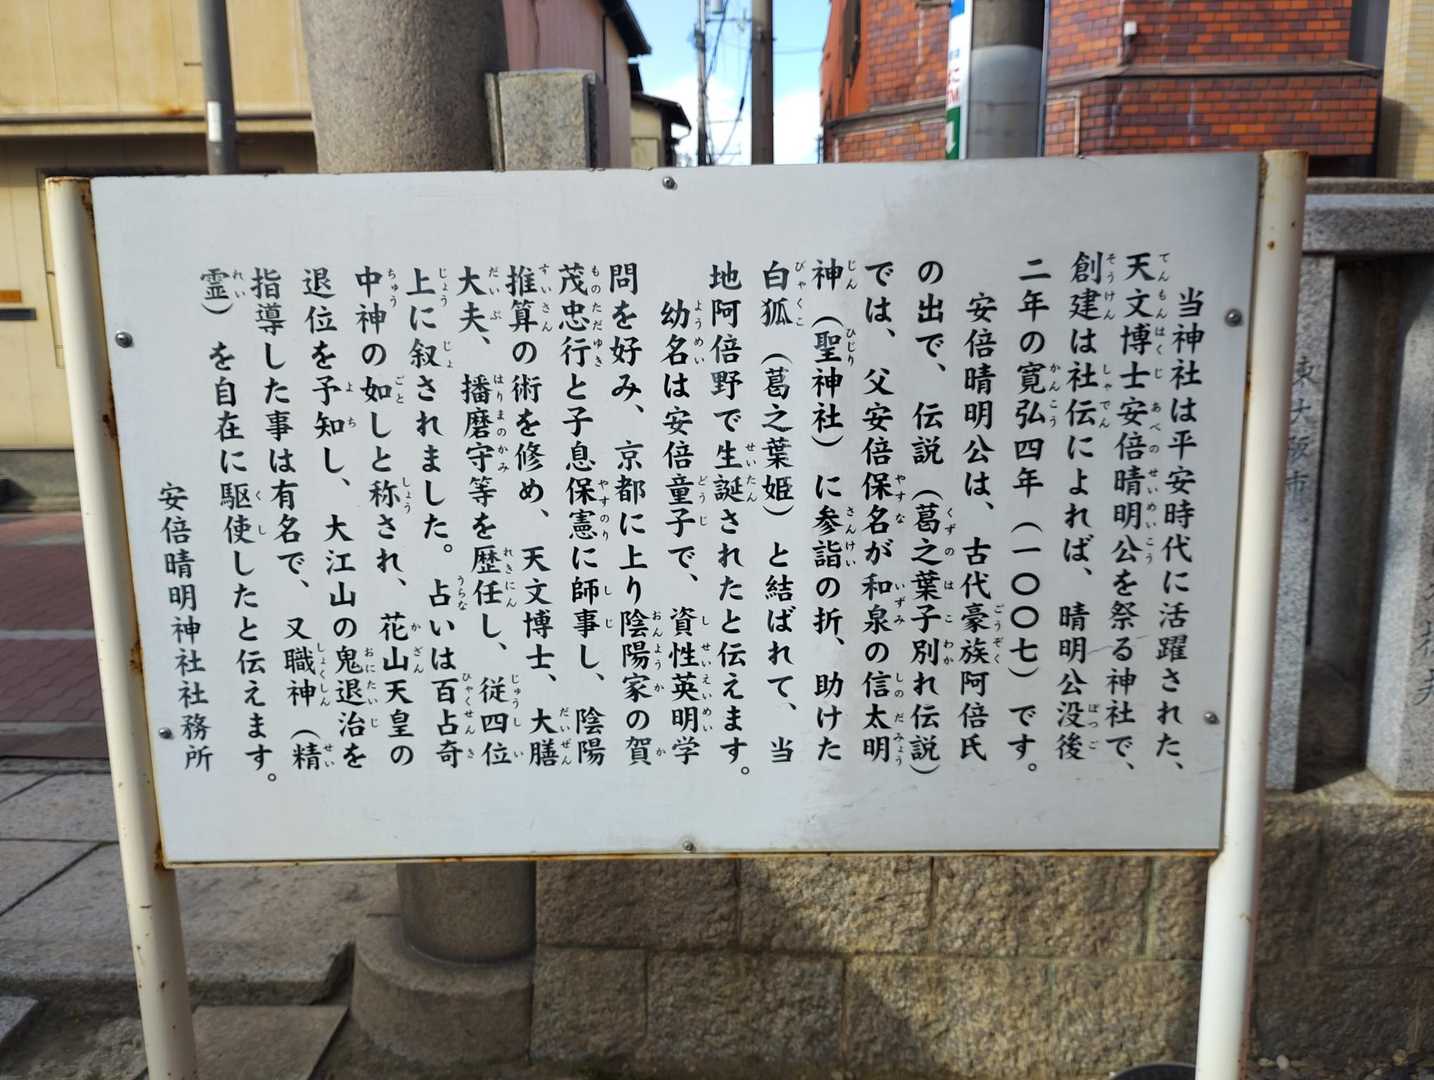 当神社は平安時代に活躍された、
天文博士安倍晴明公を祭る神社で、
創建は社伝によれば、晴明公没後
二年の寛弘四年（一〇〇七）です。
安倍晴明公は、古代豪族阿倍氏
の出で、伝説（葛之葉子別れ伝説）
では、父安倍保名が和泉の信太明
神（聖神社）に参詣の折、助けた
白狐（葛之葉姫）と結ばれて、当
地阿倍野で生誕されたと伝えます。
幼名は安倍童子で、資性英明学
問を好み、京都に上り陰陽家の賀
茂忠行と子息保憲に師事し、陰陽
推算の術を修め、天文博士、大膳
大夫、播磨守等を歴任し、従四位
上に叙されました。占いは百占奇
中神の如しと称され、花山天皇の
退位を予知し、大江山の鬼退治を
指導した事は有名で、又職神（精
霊）を自在に駆使したと伝えます。
安倍晴明神社社務所
東大阪市